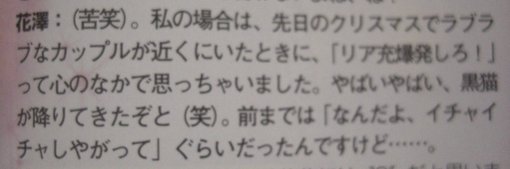 花澤：（苦笑）。私の場合は、先日のクリスマスでラブラ
ブなカップルが近くにいたときに、「リア充爆発しろ！」
って心のなかで思っちゃいました。やばいやばい、黒猫
が降りてきたぞと（笑）。前までは「なんだよ、イチャイ
チャしやがって」ぐらいだったんですけど……。